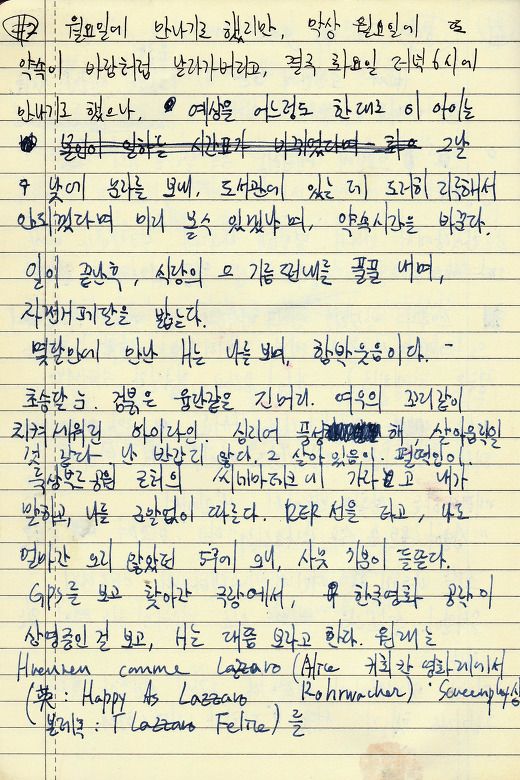 #2 월요일에 만나기로 했지만, 막상 월요일에 또
약속이 바람처럼 날라가버리고, 결국 화요일 저녁 6시에
만나기로 했으나, 예상을 어느정도 한대로 이 아이는
본인이 일하는 시간표가 바뀌었다며 그날
낮에 문자를 보내, 도서관에 있는데 도저히 지루해서
안되겠다며 미리 볼수 있겠냐며, 약속시간을 바꾼다.
일이 끝난후, 식당의 기름 쩐내를 풀풀 내며,
자전거 페달을 밟는다.
몇달만에 만난 H는 나를 보며, 함박웃음이다.
초승달 눈. 검붉은 융단같은 긴머리. 여우의 꼬리같이
치켜세워진 아이라인. 심지어 풍성해, 살아움직일
것 같다. 난 반갑지 않다. 그 살아있음이. 펄떡임이.
공원 근처의 씨네마테크에 가자고 내가
말하고, 나를 군말없이 따른다. RER 선을 타고, 나도
얼마간 오지 않았던 5구에 오니, 사뭇 기분이 들뜬다.
GPS를 보고 찾아간 극장에서, 한국영화 공작이
상영중인걸 보고, H는 대뜸 보라고 한다. 원래는
Heureux comme Lazzaro (Alice Rohrwacher)
(英: Happy As Lazzaro
Felice)를